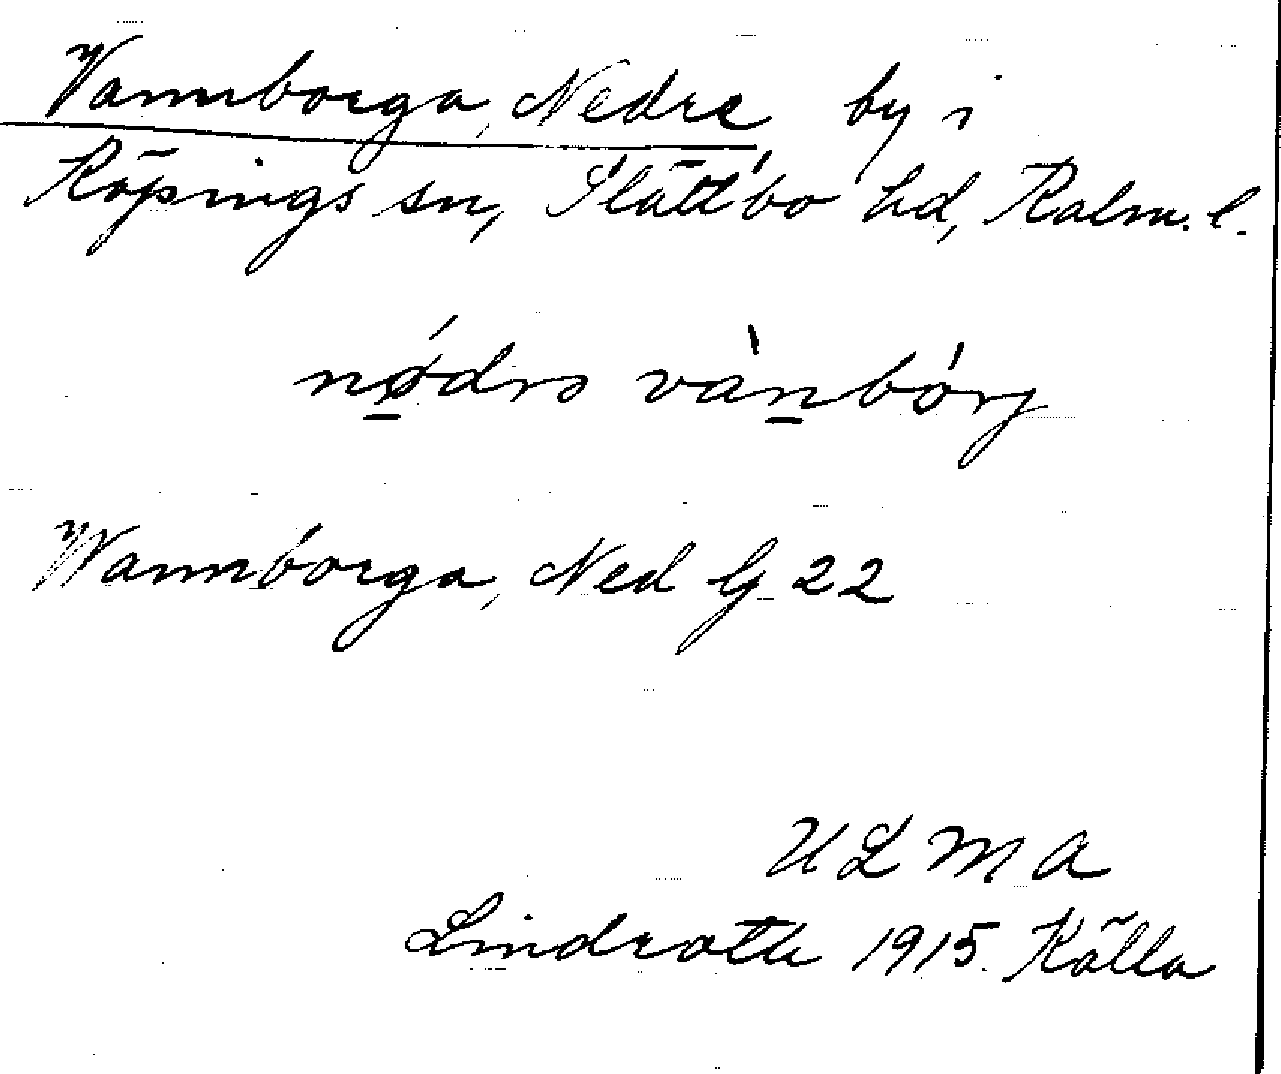 Vannborga, Nedre by i
Köpings sn, Slättbo hd, Kalm. l.
nǿ̱drə vàn̲bórj
Wannborga, Ned G 22
ULMA
Lindroth 1915. Källa